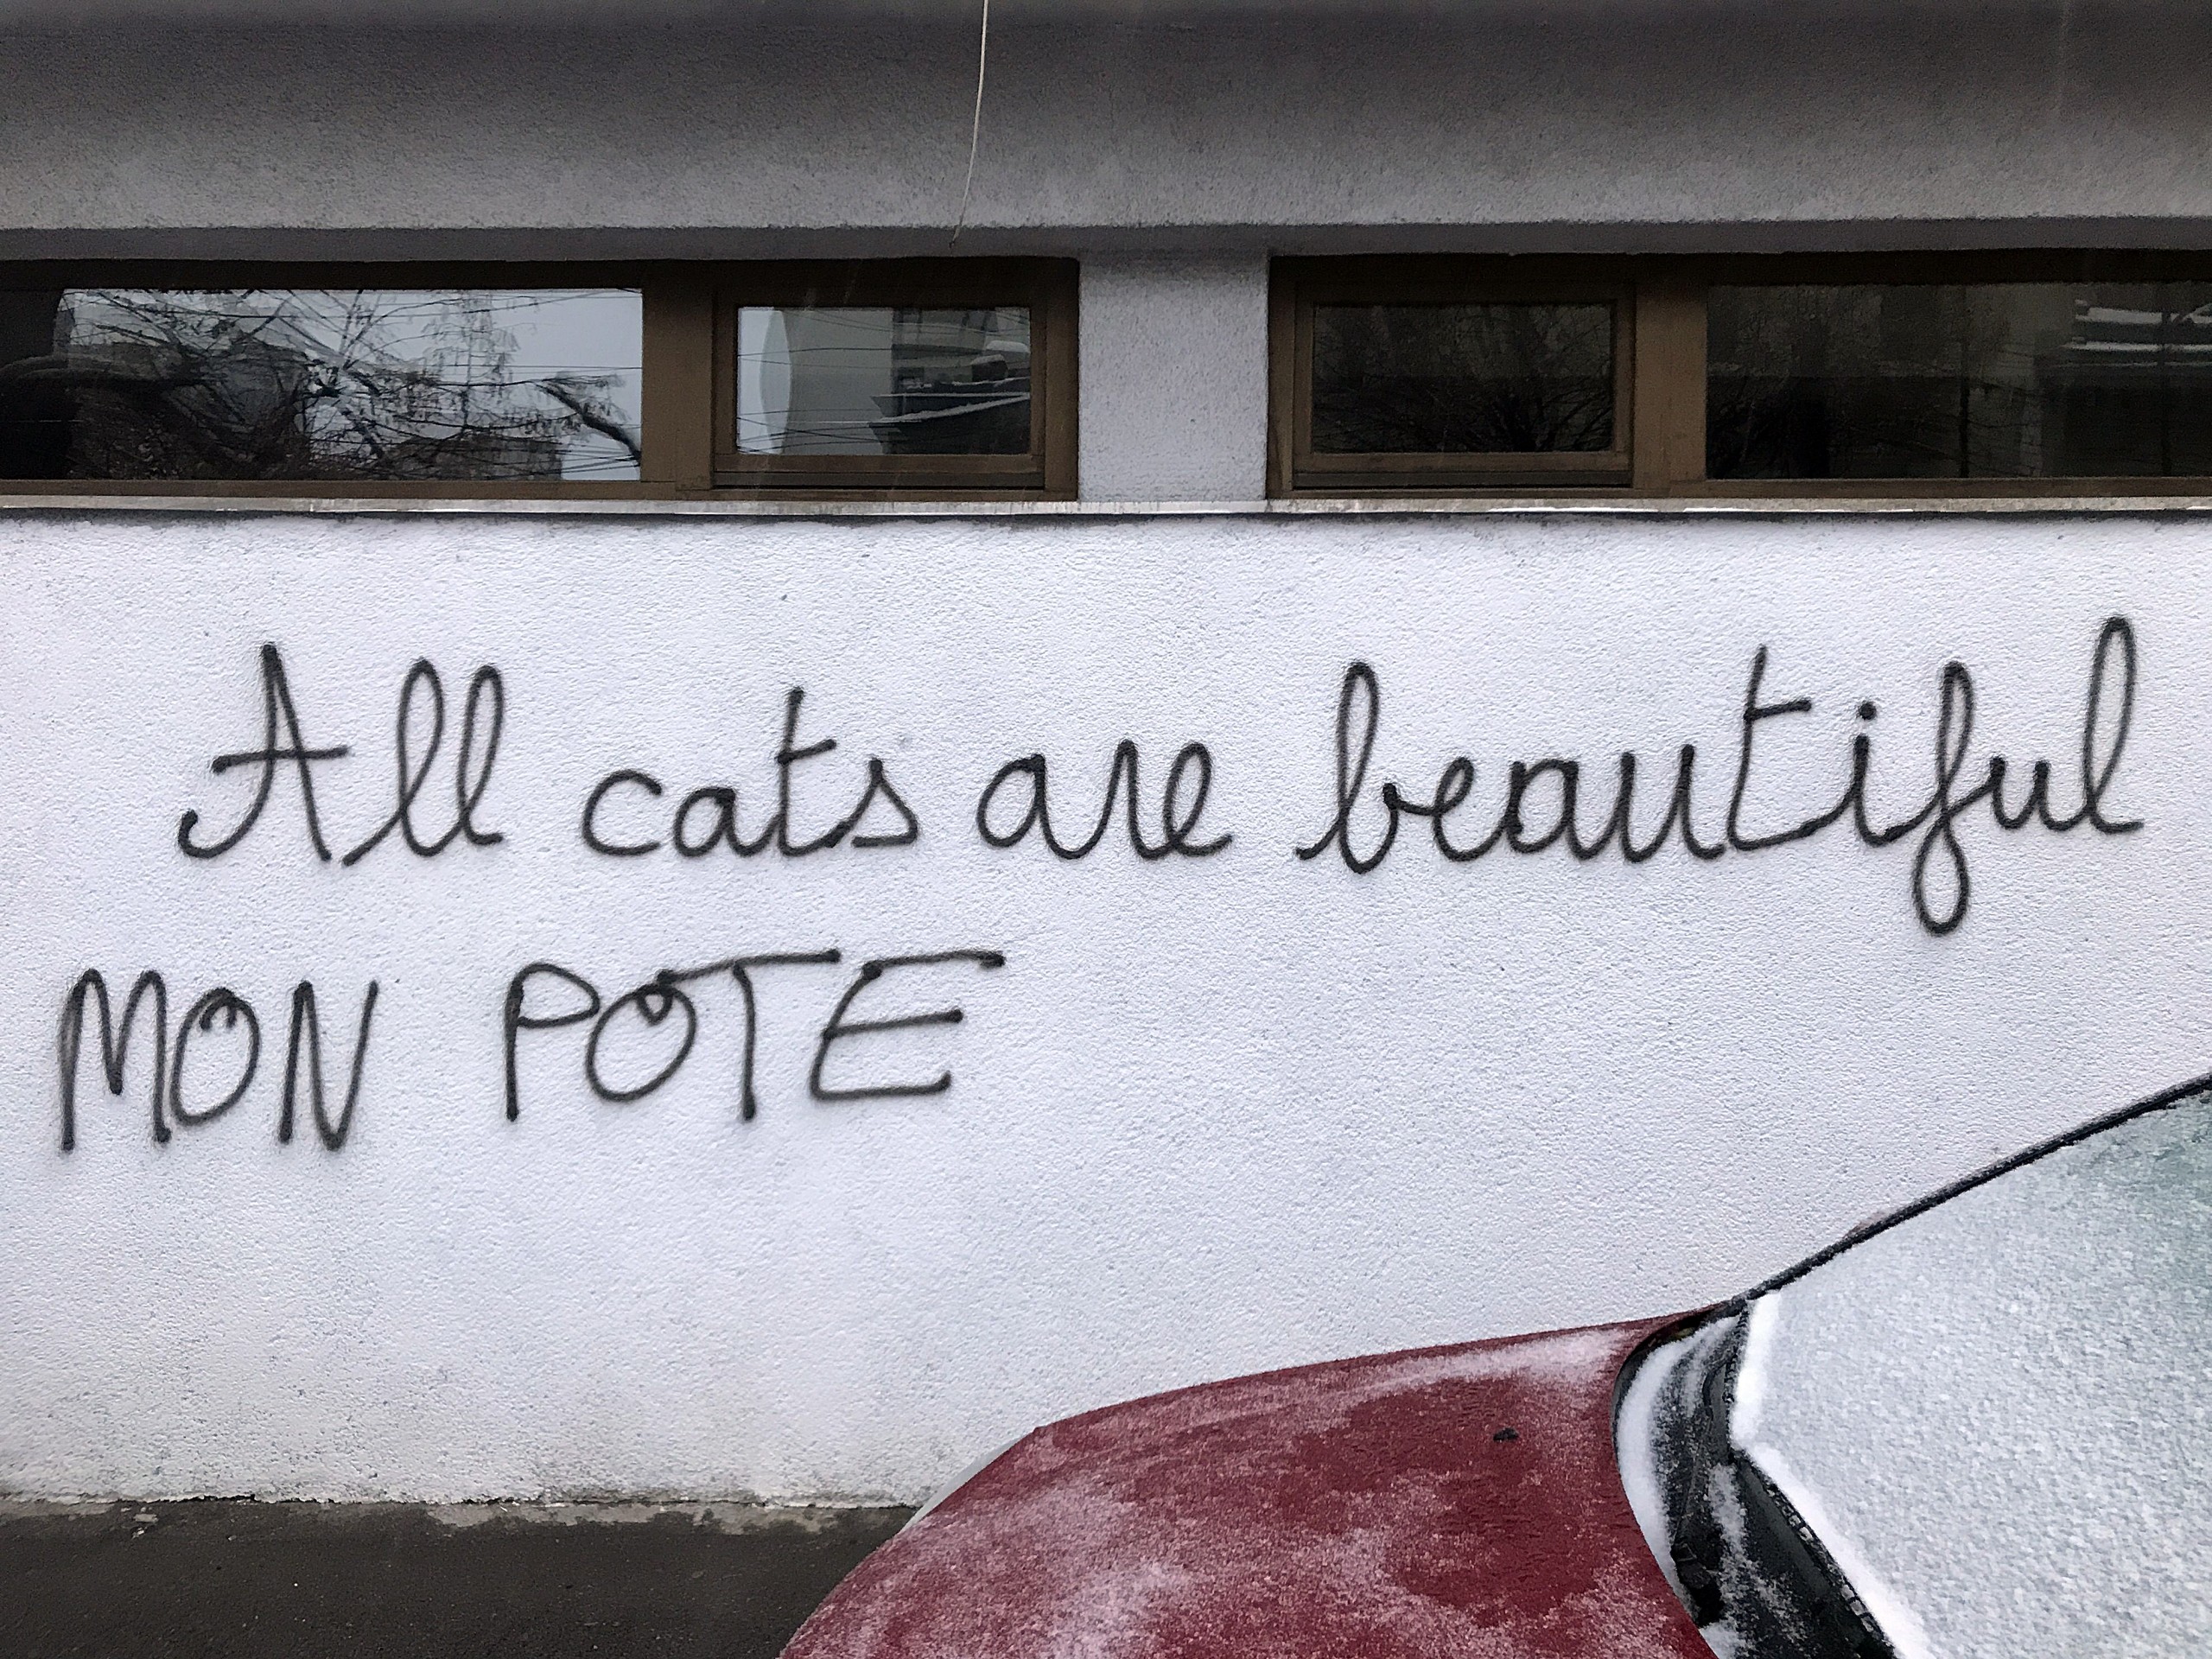 All cats are beautiful
MON POTE